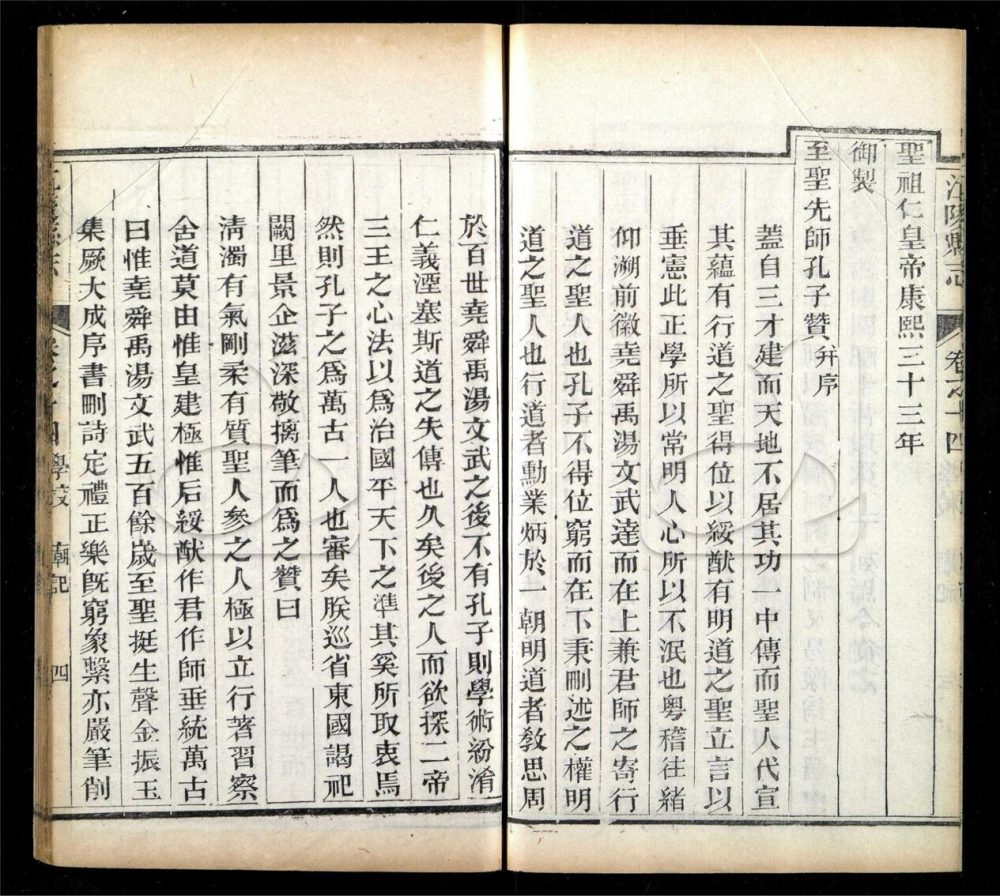 江陵縣志 卷之十四
聖祖仁皇帝康熙三十三年
御製
至聖先師孔子贊 幷序
蓋自三才建而天地不居其功一中傳而聖人代宣
其蘊有行道之聖得位以綏猷有明道之聖立言以
垂憲此正學所以常明人心所以不泯也粵稽往緒
仰溯前徽堯舜禹湯文武達而在上兼君師之寄行
道之聖人也孔子不得位窮而在下秉刪述之權明
道之聖人也行道者勳業炳於一朝明道者敎思周
於百世堯舜禹湯文武之後不有孔子則學術紛淆
仁義湮塞斯道之失傳也久矣後之人而欲探二帝
三王之心法以爲治國平天下之準其奚所取衷焉
然則孔子之爲萬古一人也審矣朕巡省東國謁祀
闕里景企滋深敬摛筆而爲之贊曰
淸濁有氣剛柔有質聖人參之人極以立行著習察
舍道莫由惟皇建極惟后綏猷作君作師垂統萬古
曰惟堯舜禹湯文武五百餘歲至聖挺生聲金振玉
集厥大成序書刪詩定禮正樂旣窮象繫亦嚴筆削
卷之十四 學校 廟記 四